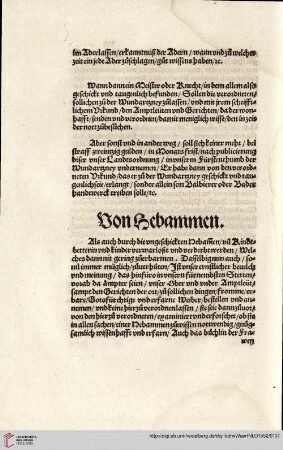 im Aderlassen / erkanntnuß der Adern / wann vnd zů welcher
zeit ein jede Ader zůschlagen / gůt wissens haben / ꝛc.
Wann dann ein Meister oder Knecht / in dem allem also
geschickt vnd taugenlich befunden / Sollen die verordneten /
söllichen zů der Wundartzney zůlassen / vnd mit jrem schrifft-
lichem Vrkund / den Amptleüten vnd Gerichten / da der won-
hafft / senden vnd verordnen / damit meniglich wisse / den in zeit
der not zůbesůchen.
Aber sonst vnd in ander weg / soll sich keiner mehr / bei
straff zweintzig gulden / in Monats frist / nach publicierung
diser vnser Landtsordnung / in vnserm Fürstenthumb der
Wundartzney vndernemen / Er habe dann von den verord-
neten Vrkund / das er zů der Wundartzney geschickt vnd tau-
genlich sei / erlangt / sonder allein sein Balbierer oder Bader
handwerck treiben solle / ꝛc.
Von Hebammen.
Als auch durch die vngeschickten Hebammen / vil Kinds-
betterin vnd kinder verwarlost vnd verderbt werden / Wel-
ches dann nit gering zůerbarmen. Dasselbig nun auch / so-
uil immer müglich / zůuerhüten / Ist vnser ernstlicher beuelch
vnd meinung / das hinfüro in vnsern fürnembsten Stetten /
vorab da ämpter seien / vnser Ober vnd vnder Amptleüt /
sampt den Gerichten der ort / zů sollichen dingen / fromme / er-
bare / Gotsförchtige vnd erfarne Weiber / bestellen vnd an-
nemen / vnd keine hierzů verordnen lassen / sie seie dann zůuor /
von den hierzů verordneten / examiniert vnd erforschet / ob sie
in allen sachen / einer Hebammen zůwissen notwendig / gnůg-
samlich wissenhafft vnd erfarn / Auch das büchlin der Fra-
wen